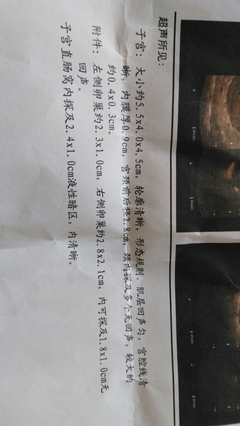 超声所见:
子宫:大小约5.5x4.0x4.5cm,轮廓清晰,形态规则,肌层回声匀,宫腔线清
晰,内膜厚0.9cm,宫颈前后径2.8cm,颈内探及多个无回声,较大的
约0.4x0.3cm。
附件:左侧卵巢约2.3x1.0cm,右侧卵巢约2.8x2.1cm,内可探及1.8x1.0cm无
回声。
子宫直肠窝内探及2.4x1.0cm液性暗区,内清晰。